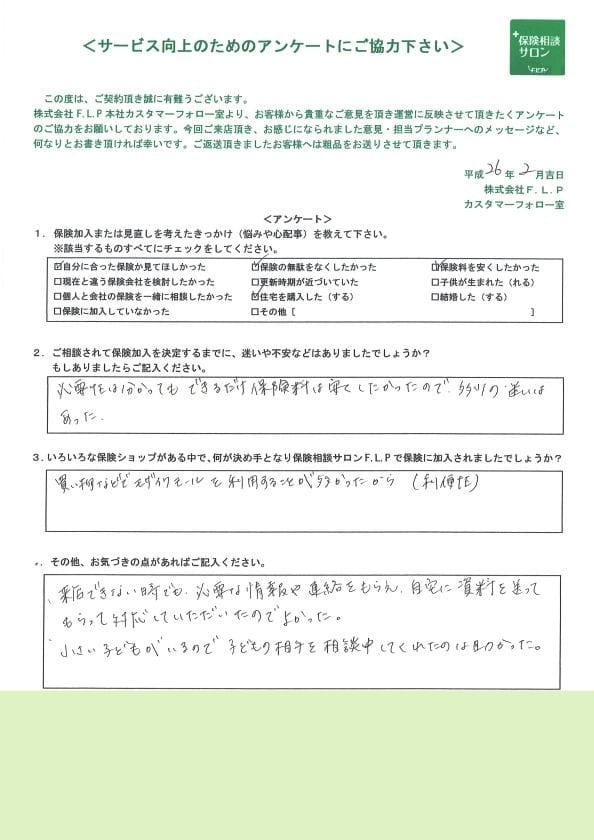 ＜サービス向上のためのアンケートにご協力下さい＞
保険相談
サロン
F.L.P
この度は、ご契約頂き誠に有難うございます。
株式会社F.L.P本社カスタマーフォロー室より、お客様から貴重なご意見を頂き運営に反映させて頂きたくアンケート
のご協力をお願いしております。今回ご来店頂き、お感じになられました意見・担当プランナーへのメッセージなど、
何なりとお書き頂ければ幸いです。ご返送頂きましたお客様へは粗品をお送りさせて頂きます。
平成 26 年 2 月吉日
株式会社F．L．P
カスタマーフォロー室
＜アンケート＞
1．保険加入または見直しを考えたきっかけ（悩みや心配事）を教えて下さい。
※該当するものすべてにチェックをしてください。
☑自分に合った保険か見てほしかった ☑保険の無駄をなくしたかった ☑保険料を安くしたかった
□現在と違う保険会社を検討したかった □更新時期が近づいていた □子供が生まれた（れる）
□個人と会社の保険を一緒に相談したかった ☑住宅を購入した（する） □結婚した（する）
□保険に加入していなかった □その他［ ］
2．ご相談されて保険加入を決定するまでに、迷いや不安などはありましたでしょうか？
もしありましたらご記入ください。
必要性は分かってもできるだけ保険料は安くしたかったので、多少の迷いは
あった．
3．いろいろな保険ショップがある中で、何が決め手となり保険相談サロンF.L.Pで保険に加入されましたでしょうか？
買い物などでモザイクモールを利用することが多かったから （利便性）
．その他、お気づきの点があればご記入ください。
、来店できない時でも、必要な情報や連絡をもらえ、自宅に資料を送って
もらって対応していただいたのでよかった。
、小さい子どもがいるので子どもの相手を相談中してくれたのは助かった。